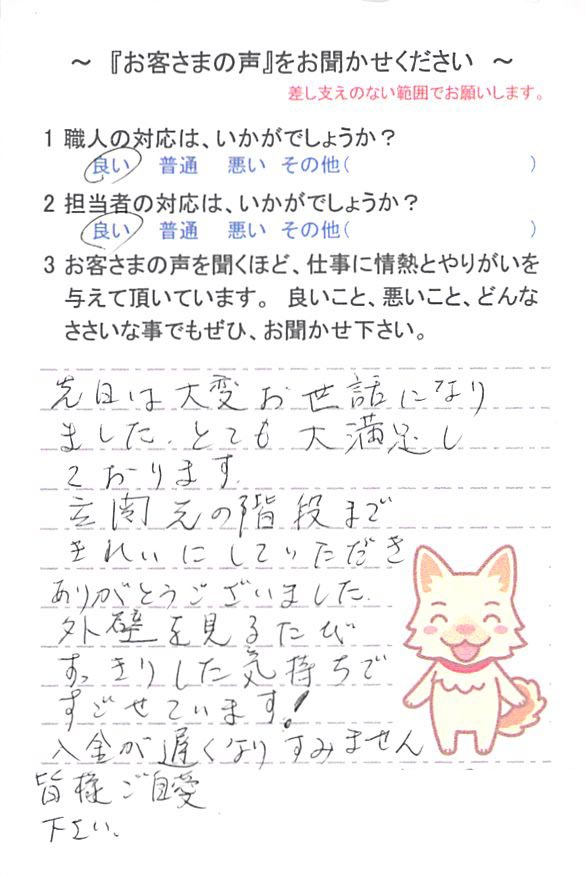 ～ 『お客さまの声』をお聞かせください ～
差し支えのない範囲でお願いします。
1 職人の対応は、いかがでしょうか？
良い 普通 悪い その他( )
2 担当者の対応は、いかがでしょうか？
良い 普通 悪い その他( )
3 お客さまの声を聞くほど、仕事に情熱とやりがいを
与えて頂いています。 良いこと、悪いこと、どんな
ささいな事でもぜひ、お聞かせ下さい。
先日は大変お世話になり
ました。とても大満足し
ております。
玄関元の階段まで
きれいにしていただき
ありがとうございました。
外壁を見るたび
すっきりした気持ちで
すごせています！
入金が遅くなりすみません
皆様ご自愛
下さい。